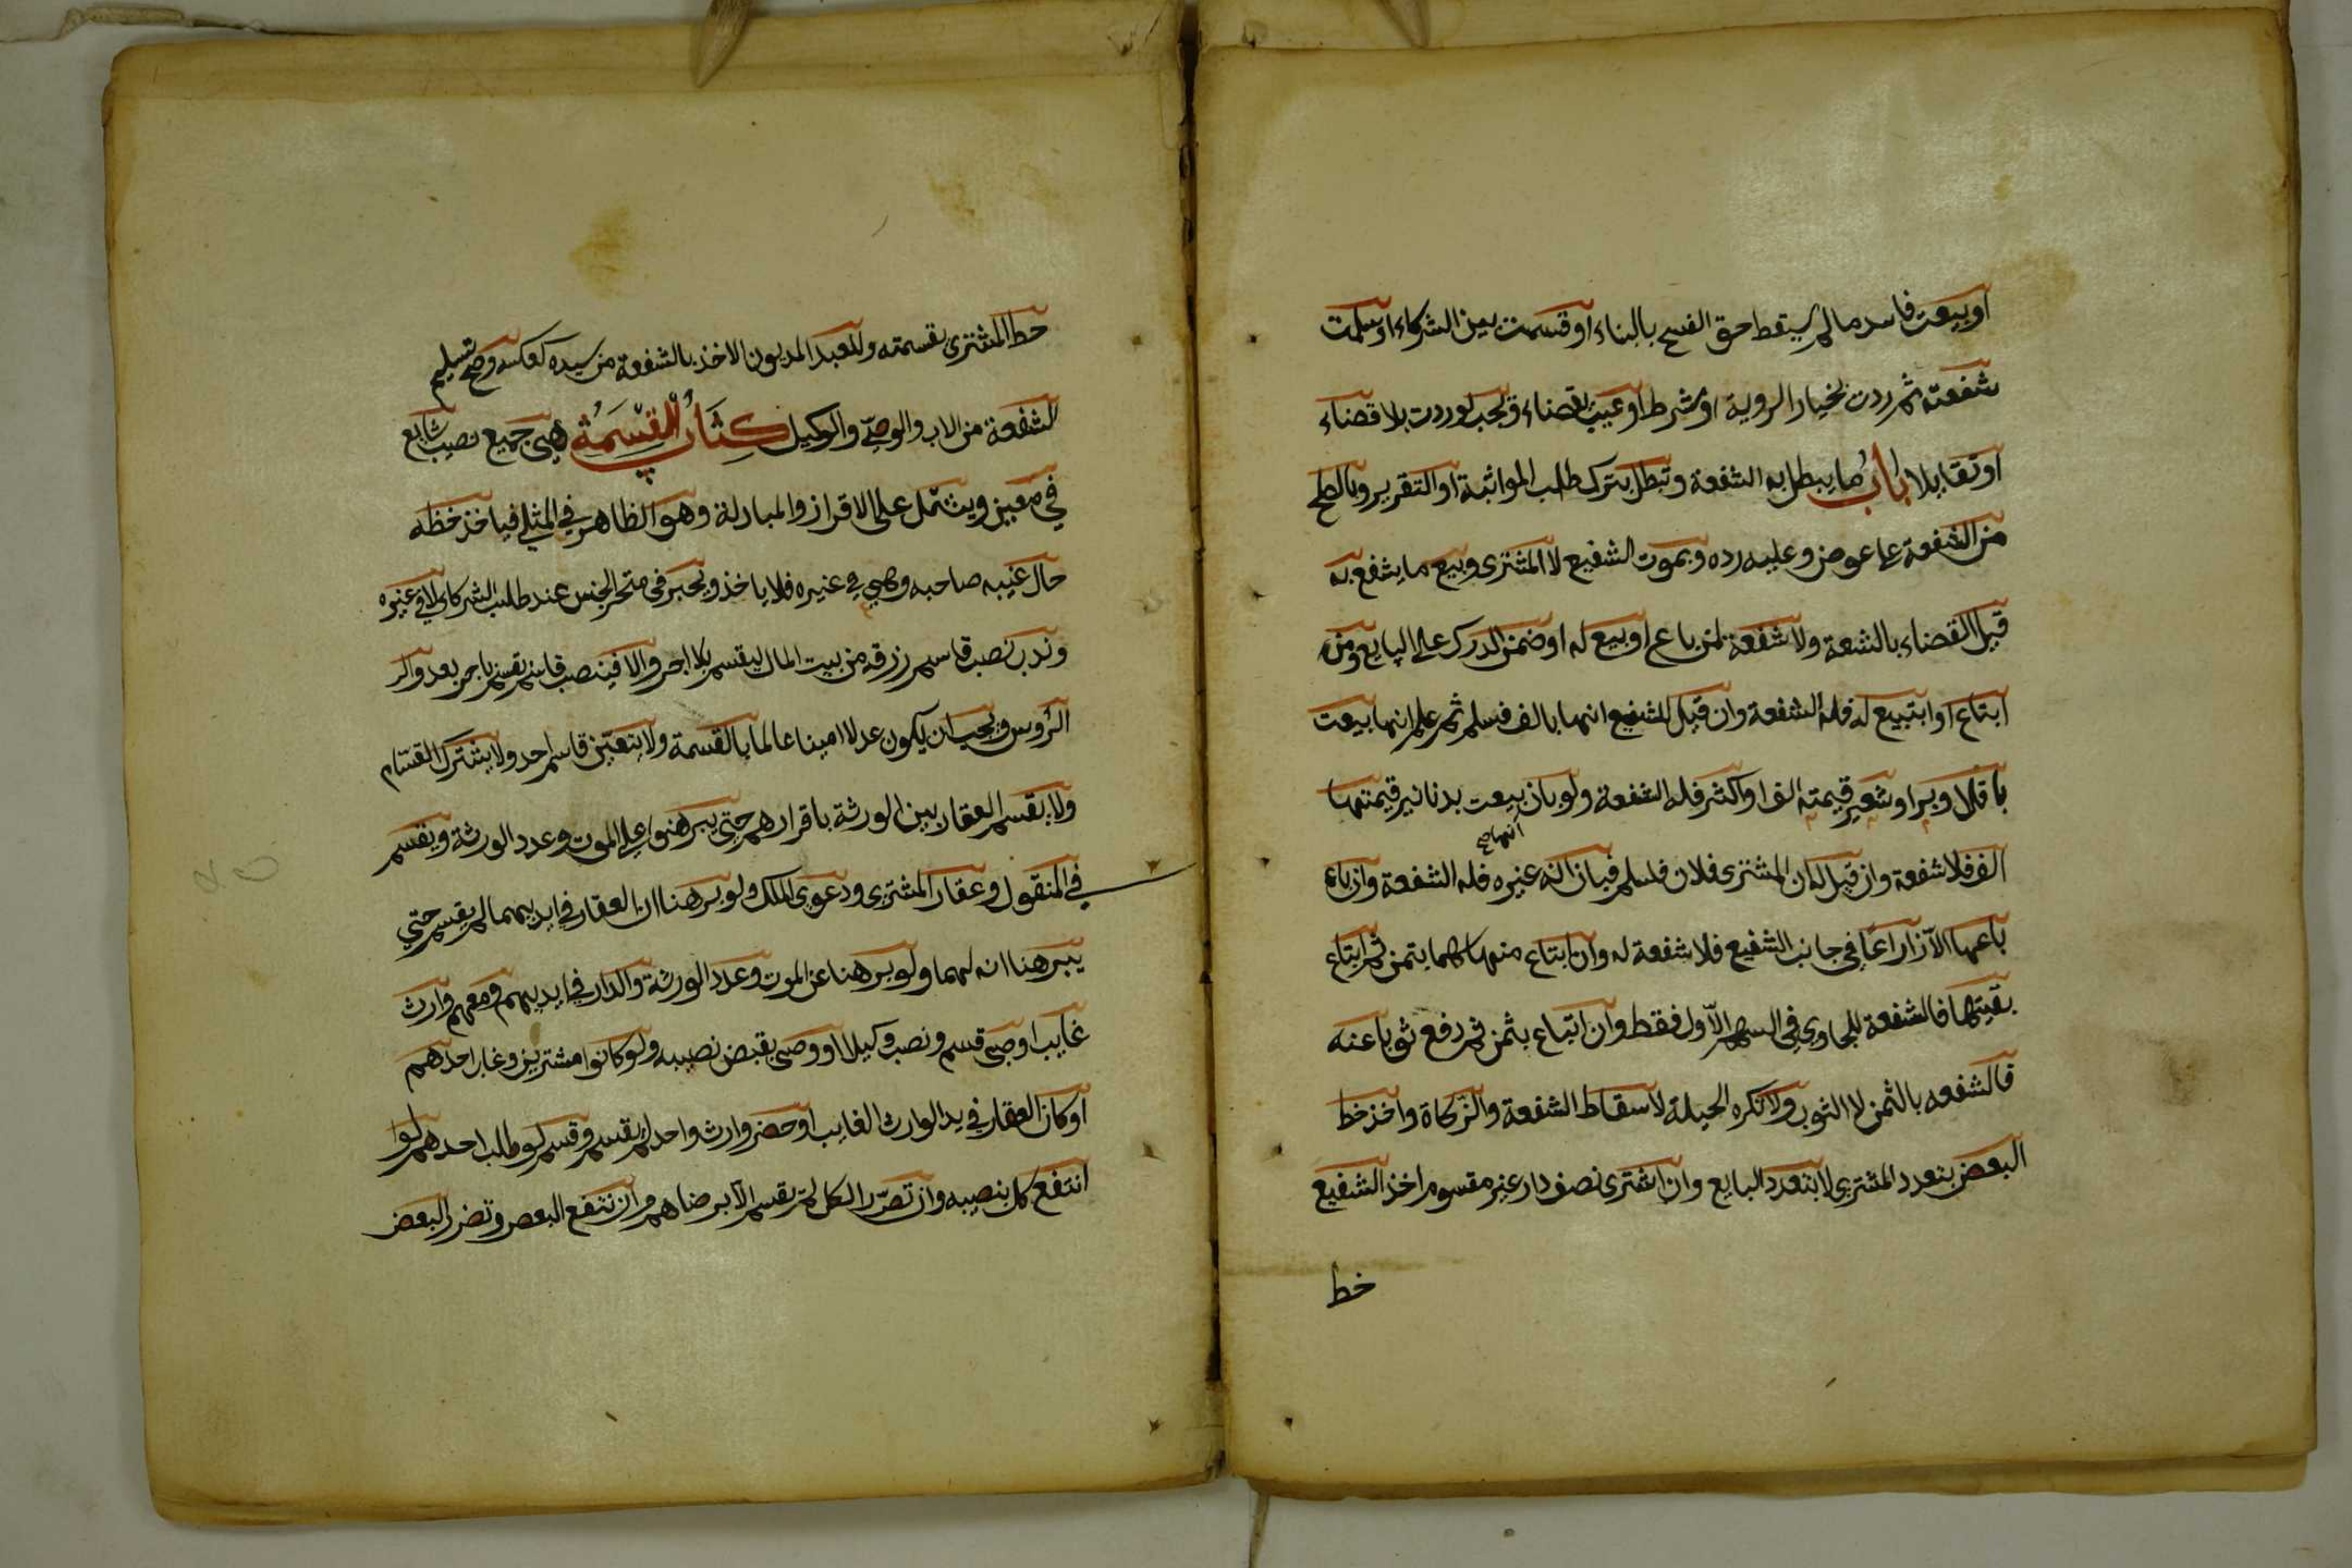 او بيعت فاسد مالم يسقط حق الفسخ بالبناء او قسمت بين الشركاء او سلمت
شفعته ثم ردت بخيار الروية او شرط او عيب بقضاء وتجب لو ردت بلا قضاء
او تقايلا باب ما يبطل به الشفعة وتبطل بترك طلب المواثبة او التقرير وبالصلح
من الشفعة على عوض وعليه رده وبموت الشفيع لا المشترى وبيع ما يشفع به
قبل القضاء بالشعة ولا شفعة لمن باع او بيع له او ضمن الدرك على البايع ومن
ابتاع او ابتيع له فله الشفعة وان قيل للشفيع انها بالف فسلم ثم علم انها بيعت
باقل او ببر او شعير قيمته الف او اكثر فله الشفعة ولو بان بيعت بدنانير قيمتها
انها صح
الف فلا شفعة وان قيل له ان المشترى فلان فسلم فبان انه غيره فله الشفعة وان باع
باعها الا ذراعا في جانب الشفيع فلا شفعة له وان ابتاع منها سهما بثمن ثم ابتاع
بقيتها فالشفعة للجاوى في السهم الاول فقط وان ابتاع بثمن ثم دفع ثوبا عنه
فالشفعه بالثمن لا الثوب ولا تكره الحيلة لاسقاط الشفعة والزكاة واخذ خط
البعض بتعدد المشترى لا بتعدد البايع وان اشترى نصف دار غير مقسوم اخذ الشفيع
خط
حط المشترى بقسمته وللعبد المديون الاخذ بالشفعة من سيده كعكسه وصح تسليم
الشفعة من الاب والوصى والوكيل كتاب القسمة هي جميع نصيب شايع
في معين ويشتمل على الاقراز والمبادلة وهو الظاهر في المثلى فياخذ خظه
حال غيبه صاحبه وهي في غيره فلا ياخذ ويجبر في متحد الجنس عند طلب الشركاء لا في غيره
وندب نصب قاسم رزقه من بيت المال ليقسم بلا اجر والا فينصب قاسم يقسم باجر بعدد الر
الروس ويجب ان يكون عدلا امينا عالما بالقسمة ولا يتعين قاسم احد ولا يشترك القسام
ولا يقسم العقار بين الورثة باقرارهم حتى يبرهنوا على الموت وعدد الورثة ويقسم
في المنقول وعقار المشترى ودعوى الملك ولو برهنا ان العقار في ايديهما لم يقسم حتي
يبرهنا انه لهما ولو برهنا عن الموت وعدد الورثة والدار في ايديهم ومعهم وارث
غايب او صبى قسم ونصب وكيلا او وصى يقبض نصيبه ولو كانوا مشترين وغاب احدهم
او كان العقار في يد الوارث الغايب او حضر وارث واحد لم يقسم وقسم لو طلب احدهم لو
انتفع كل بنصيبه وان تضرر الكل لم يقسم الا برضاهم وان نتفع البعض وتضرر البعض